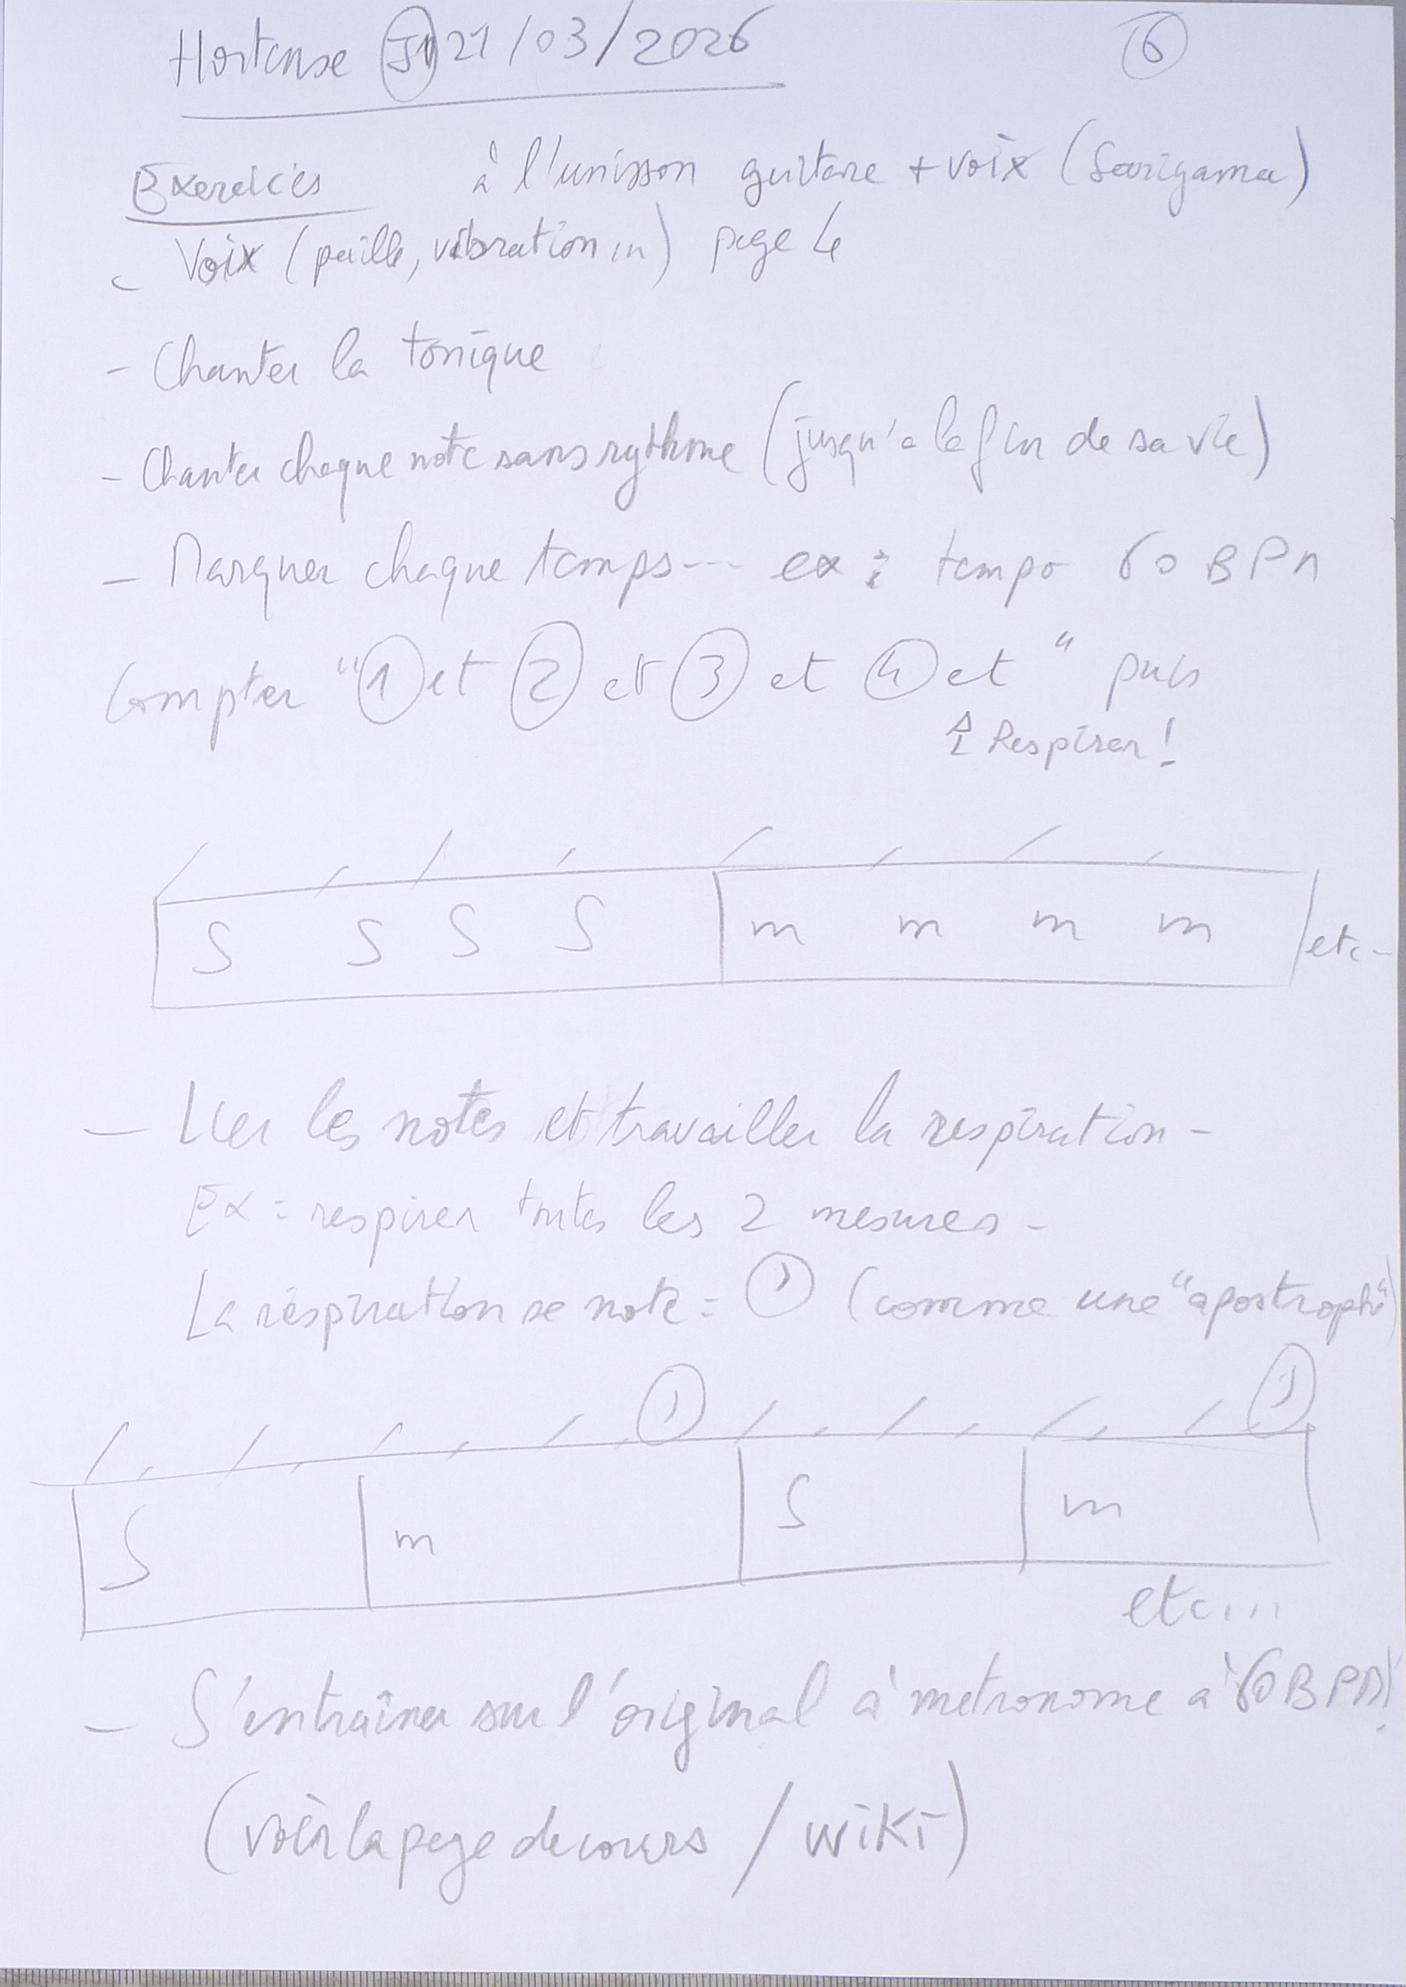 Hortense J1 21/03/2026 6
Exercices à l'unisson guitare + voix (Sarigama)
- Voix (paille, vibration m) page 4
- Chanter la tonique
- Chanter chaque note sans rythme (jusqu'à la fin de sa vie)
- Marquer chaque temps... ex : tempo 60 BPM
Compter "1 et 2 et 3 et 4 et" puis
Respirer !
S S S S m m m m etc-
- Lier les notes et travailler la respiration -
Ex : respirer toutes les 2 mesures -
La respiration se note : ' (comme une "apostrophe")
' '
S m S m
etc...
- S'entraîner sur l'original à métronome à 60 BPM!
(voir la page de cours / wiki)